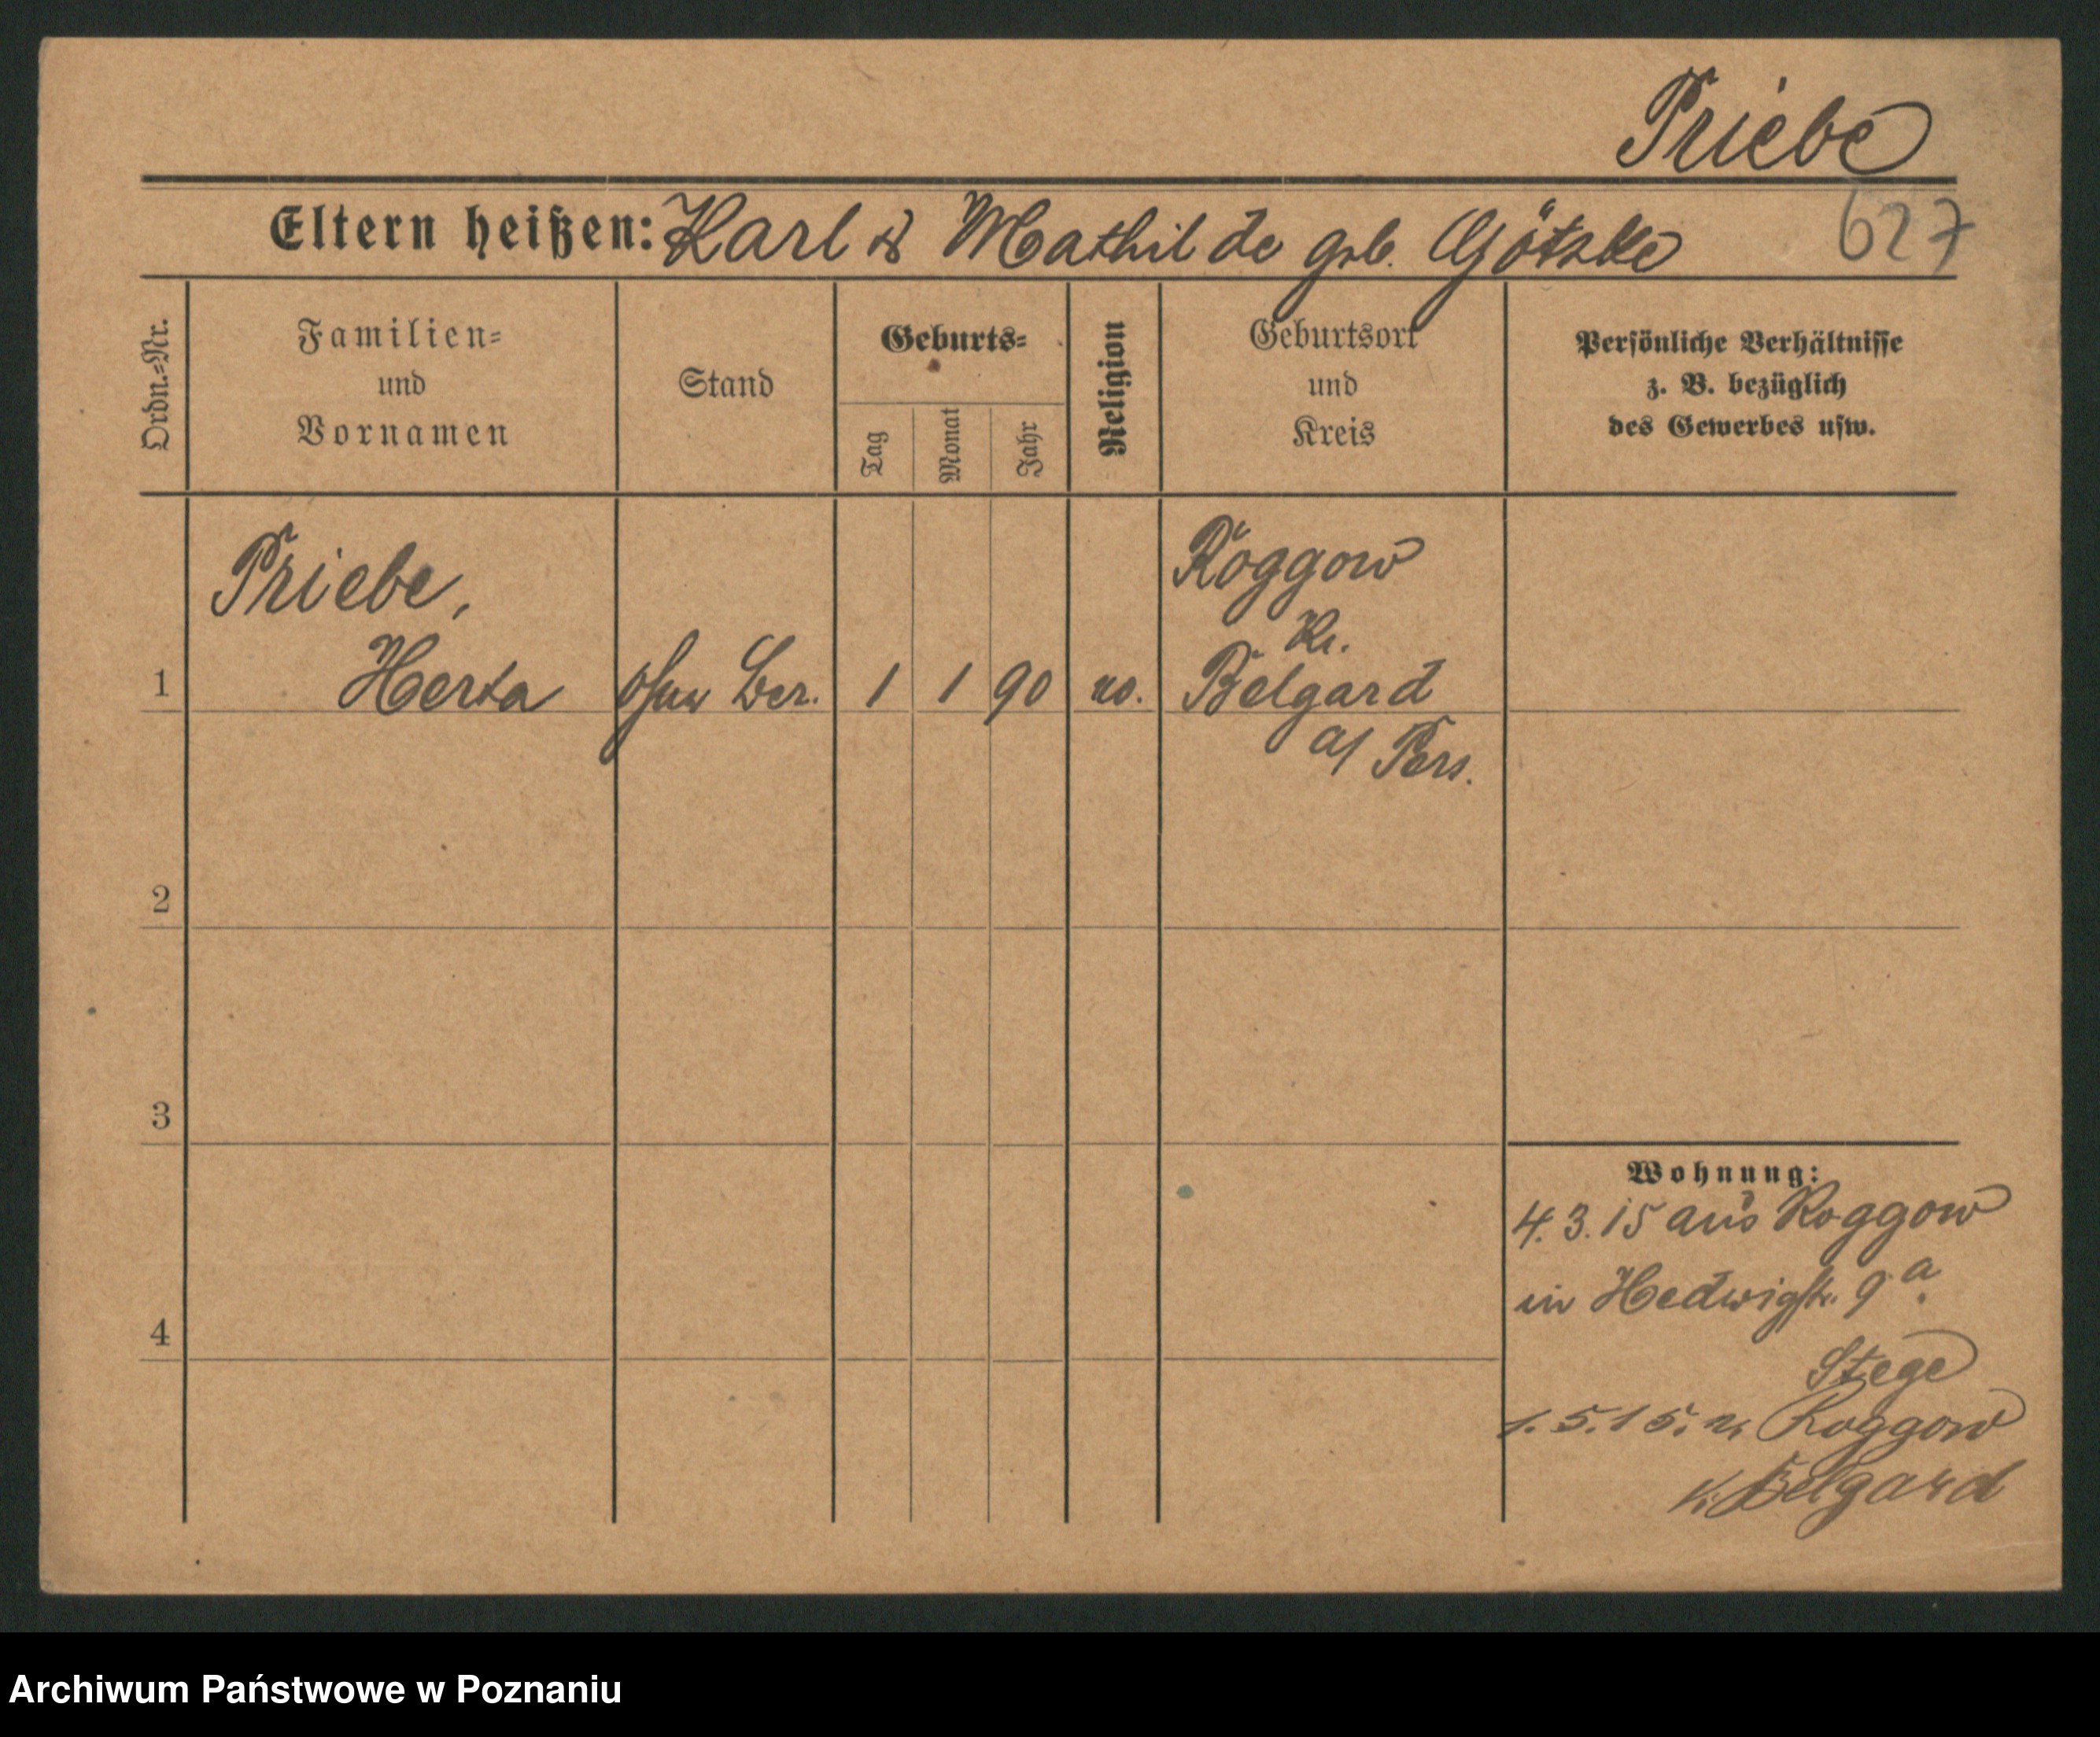 Priebe
Eltern heißen: Karl & Mathilde geb. Götzke
627
Ordn.-Nr.
Familien-
und
Vornamen
Stand
Geburts-
Tag
Monat
Jahr
Religion
Geburtsort
und
Kreis
Persönliche Verhältnisse
z. B. bezüglich
des Gewerbes usw.
Priebe,
Roggow
Kr.
1 Herta ohne Ber. 1 1 90 ev. Belgard
a/ Pers.
2
3
Wohnung:
4. 3. 15 aus Roggow
in Hedwigstr. 9 a.
4
Stege
1. 5. 15. n. Roggow
K. Belgard
Archiwum Państwowe w Poznaniu